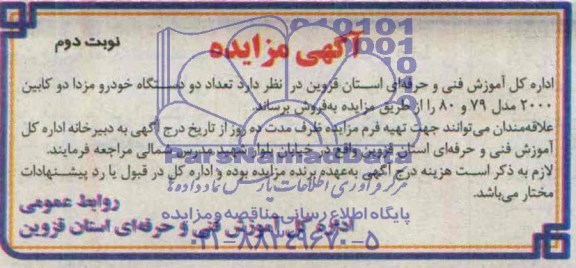 آگهی مزایده
نوبت دوم
اداره کل آموزش فنی و حرفه‌ای استان قزوین در نظر دارد تعداد دو دستگاه خودرو مزدا دو کابین
۲۰۰۰ مدل ۷۹ و ۸۰ را از طریق مزایده به‌فروش برساند.
علاقه‌مندان می‌توانند جهت تهیه فرم مزایده ظرف مدت ده روز از تاریخ درج آگهی به دبیرخانه اداره کل
آموزش فنی و حرفه‌ای استان قزوین واقع در خیابان بلوار شهید مدرس شمالی مراجعه فرمایند.
ParsNamadData
لازم به ذکر است هزینه درج آگهی به‌عهده برنده مزایده بوده و اداره کل در قبول یا رد پیشنهادات
مختار می‌باشد.
مرکز فرآوری اطلاعات پارس نماد داده ها
روابط عمومی
پایگاه اطلاع رسانی مناقصه و مزایده
اداره کل آموزش فنی و حرفه‌ای استان قزوین
۰۲۱-۸۸۳۴۹۶۷۰-۵